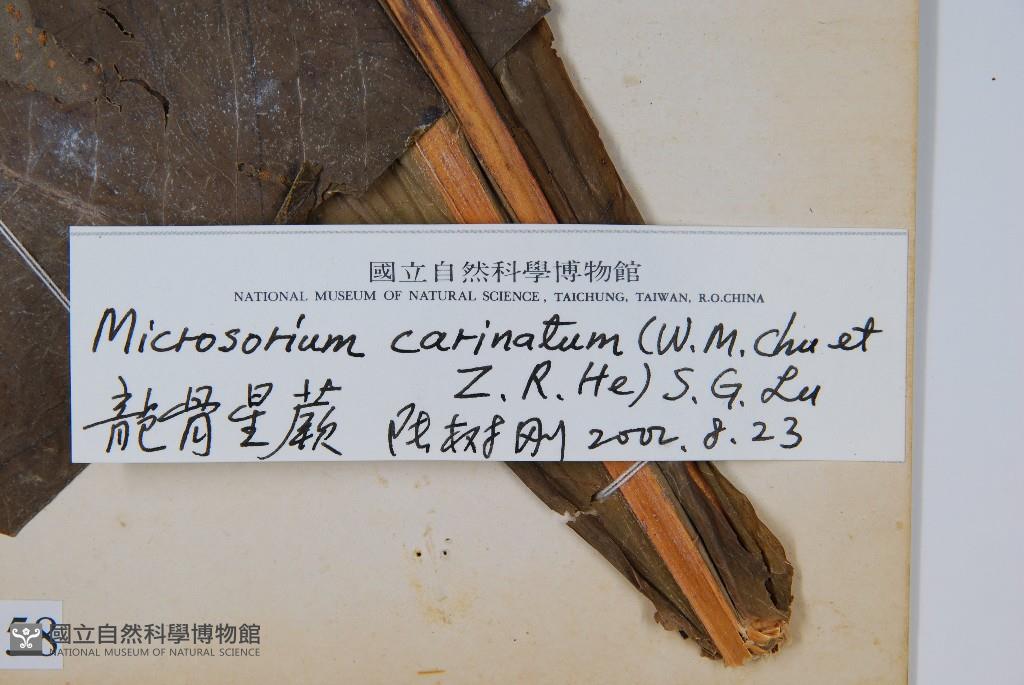 國立自然科學博物館
NATIONAL MUSEUM OF NATURAL SCIENCE, TAICHUNG, TAIWAN, R.O.CHINA
Microsorium carinatum (W.M.Chu et
Z.R.He) S.G.Lu
龍骨星蕨 陆树刚 2002.8.23
58
國立自然科學博物館
NATIONAL MUSEUM OF NATURAL SCIENCE